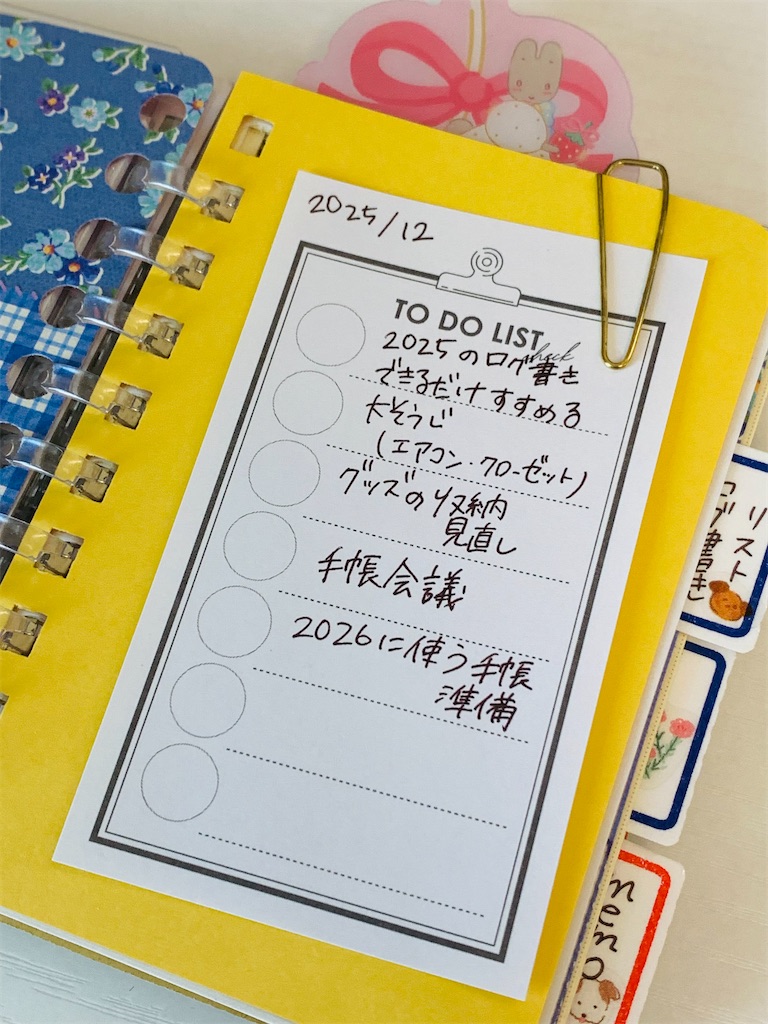 2025/12
TO DO LIST
check
2025のログ書き
できるだけすすめる
大そうじ
(エアコン・クローゼット)
グッズの収納
見直し
手帳会議
2026に使う手帳
準備
リスト
ログ書き
memo